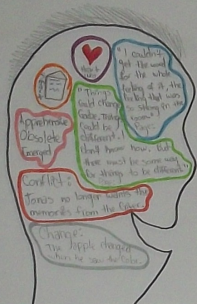 "I couldn't
get the word
for the whole
feeling of it, the
feeling that was
so strong in the
room"
"Things
could change
Gabe. Things
could be
different. I
don't know how. But
there must be some way
for things to be different"
Apprehensive
Obsolete
Conflict:
Jonas no longer wants the
memories from the Giver.
Change:
The apple changed
when he saw the color.